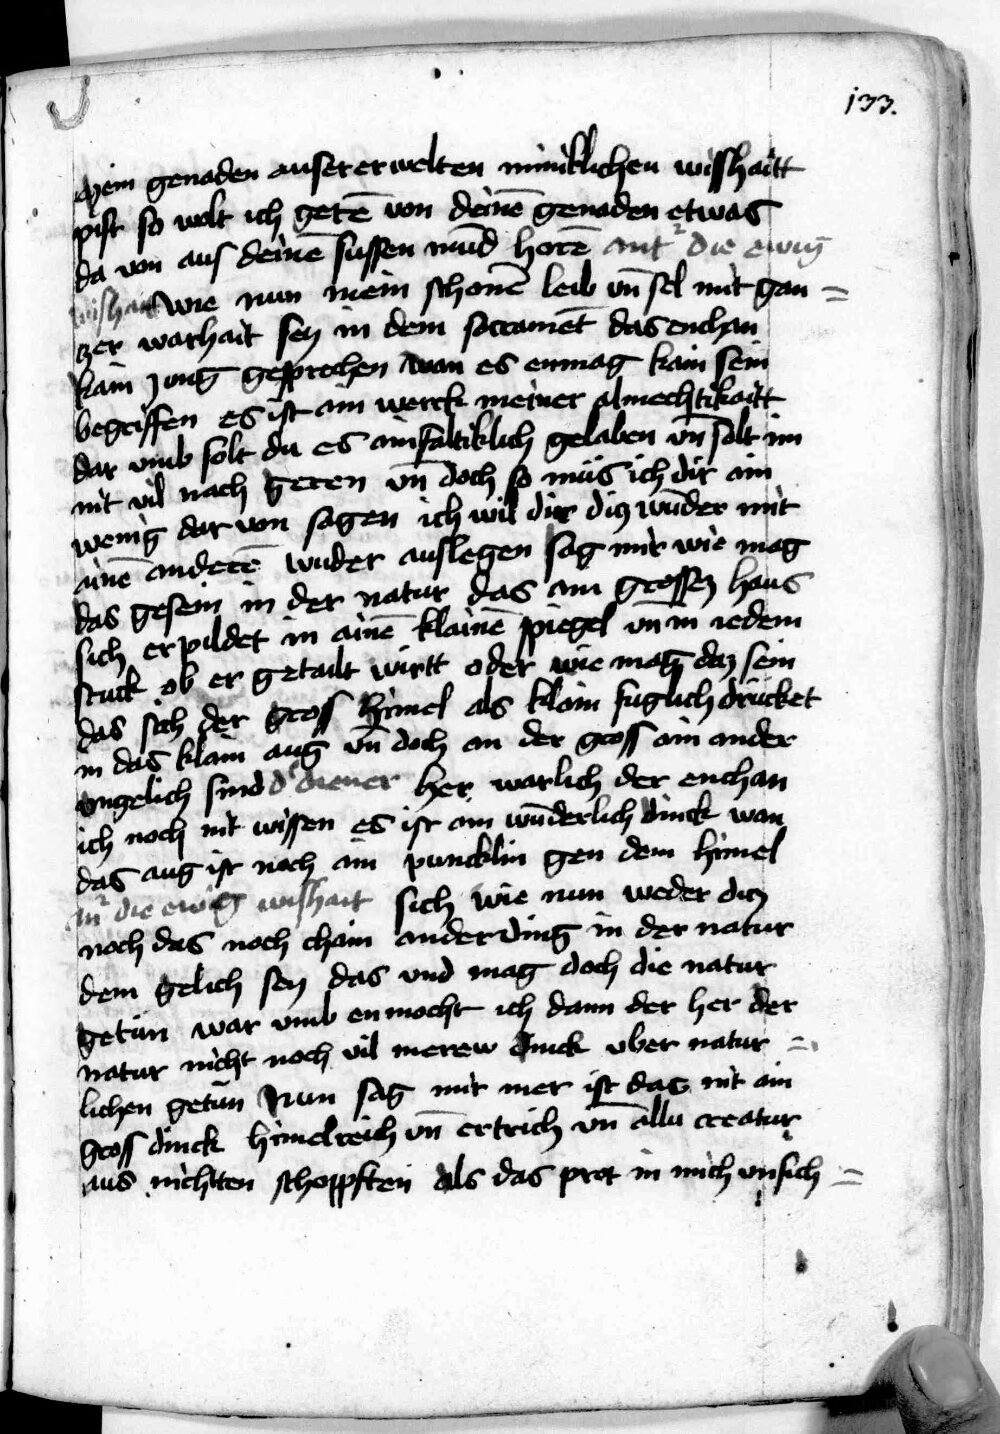 133.
mein genaden auser erwelten miniklichen wisshaitt
pist so wolt ich gerē von deinē genaden etwas
da von aus deinē sussen mūd horē ant² die ewig
wishait wie nun mein schonē leib vn̄ sel mit gan =
tzer warhait sey in dem sacramēt das enchan
kain zung gesprechen wan es enmag kain sein
begriffen es ist ain werck meiner almechtikaitt
dar vmb solt du es ainfaltiklich gelaben vn̄ solt im
nit vil nach geren vn̄ doch so müs ich dir ain
wenig dar von sagen ich wil dir dig wūder mit
ainē anderē wuder auslegen sag mir wie mag
das gesein in der natur das ain grossez haus
sich erpildet in ainē klainē spiegel vn̄ in iedem
stuck ob er getailt wirtt oder wie mag daz sein
das sich der gross himel als klain fuglich drucket
in das klain aug vn̄ doch an der gross ain ander
vngelich sind d' diener her warlich der enchan
ich noch nit wissen es ist ain wūderlich dinck wan
das aug ist noch ain puncklin gen dem himel
an² die ewig wishait sich wie nun weder ditz
noch das noch chain ander ding in der natur
dem gelich sey das vnd mag doch die natur
getün war vmb enmocht ich dann der her der
natur nicht noch vil merew dinck vber natur =
lichen getün Nun sag mir mer ist das nit ain
gross dinck himelreich vn̄ ertrich vn̄ allu creatur
aus nichten schoppffen als das prot in mich vnsich =